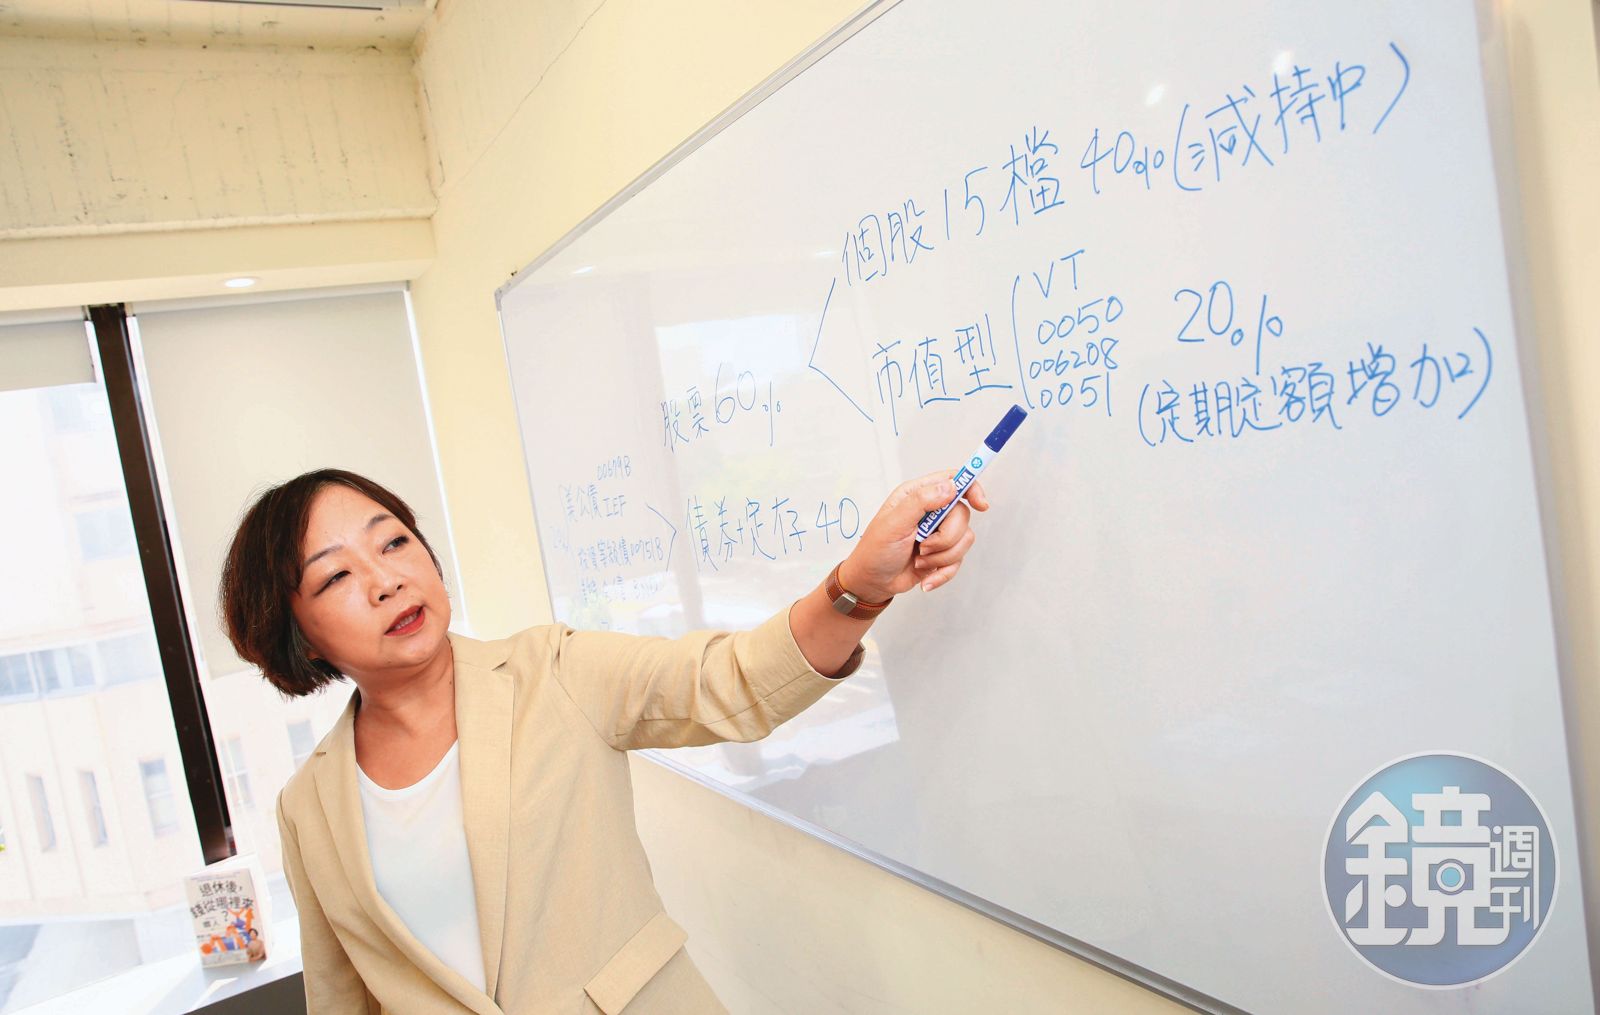 個股15檔 40%(減持中)
市值型
VT
0050
006208
0051
20%
(定期定額增加)
股票60%
債券+定存40
00679B
美公債IEF
投資等級債00751B
Whiteboard
退休後,
錢從哪裡來?
嫺人
鏡週刊